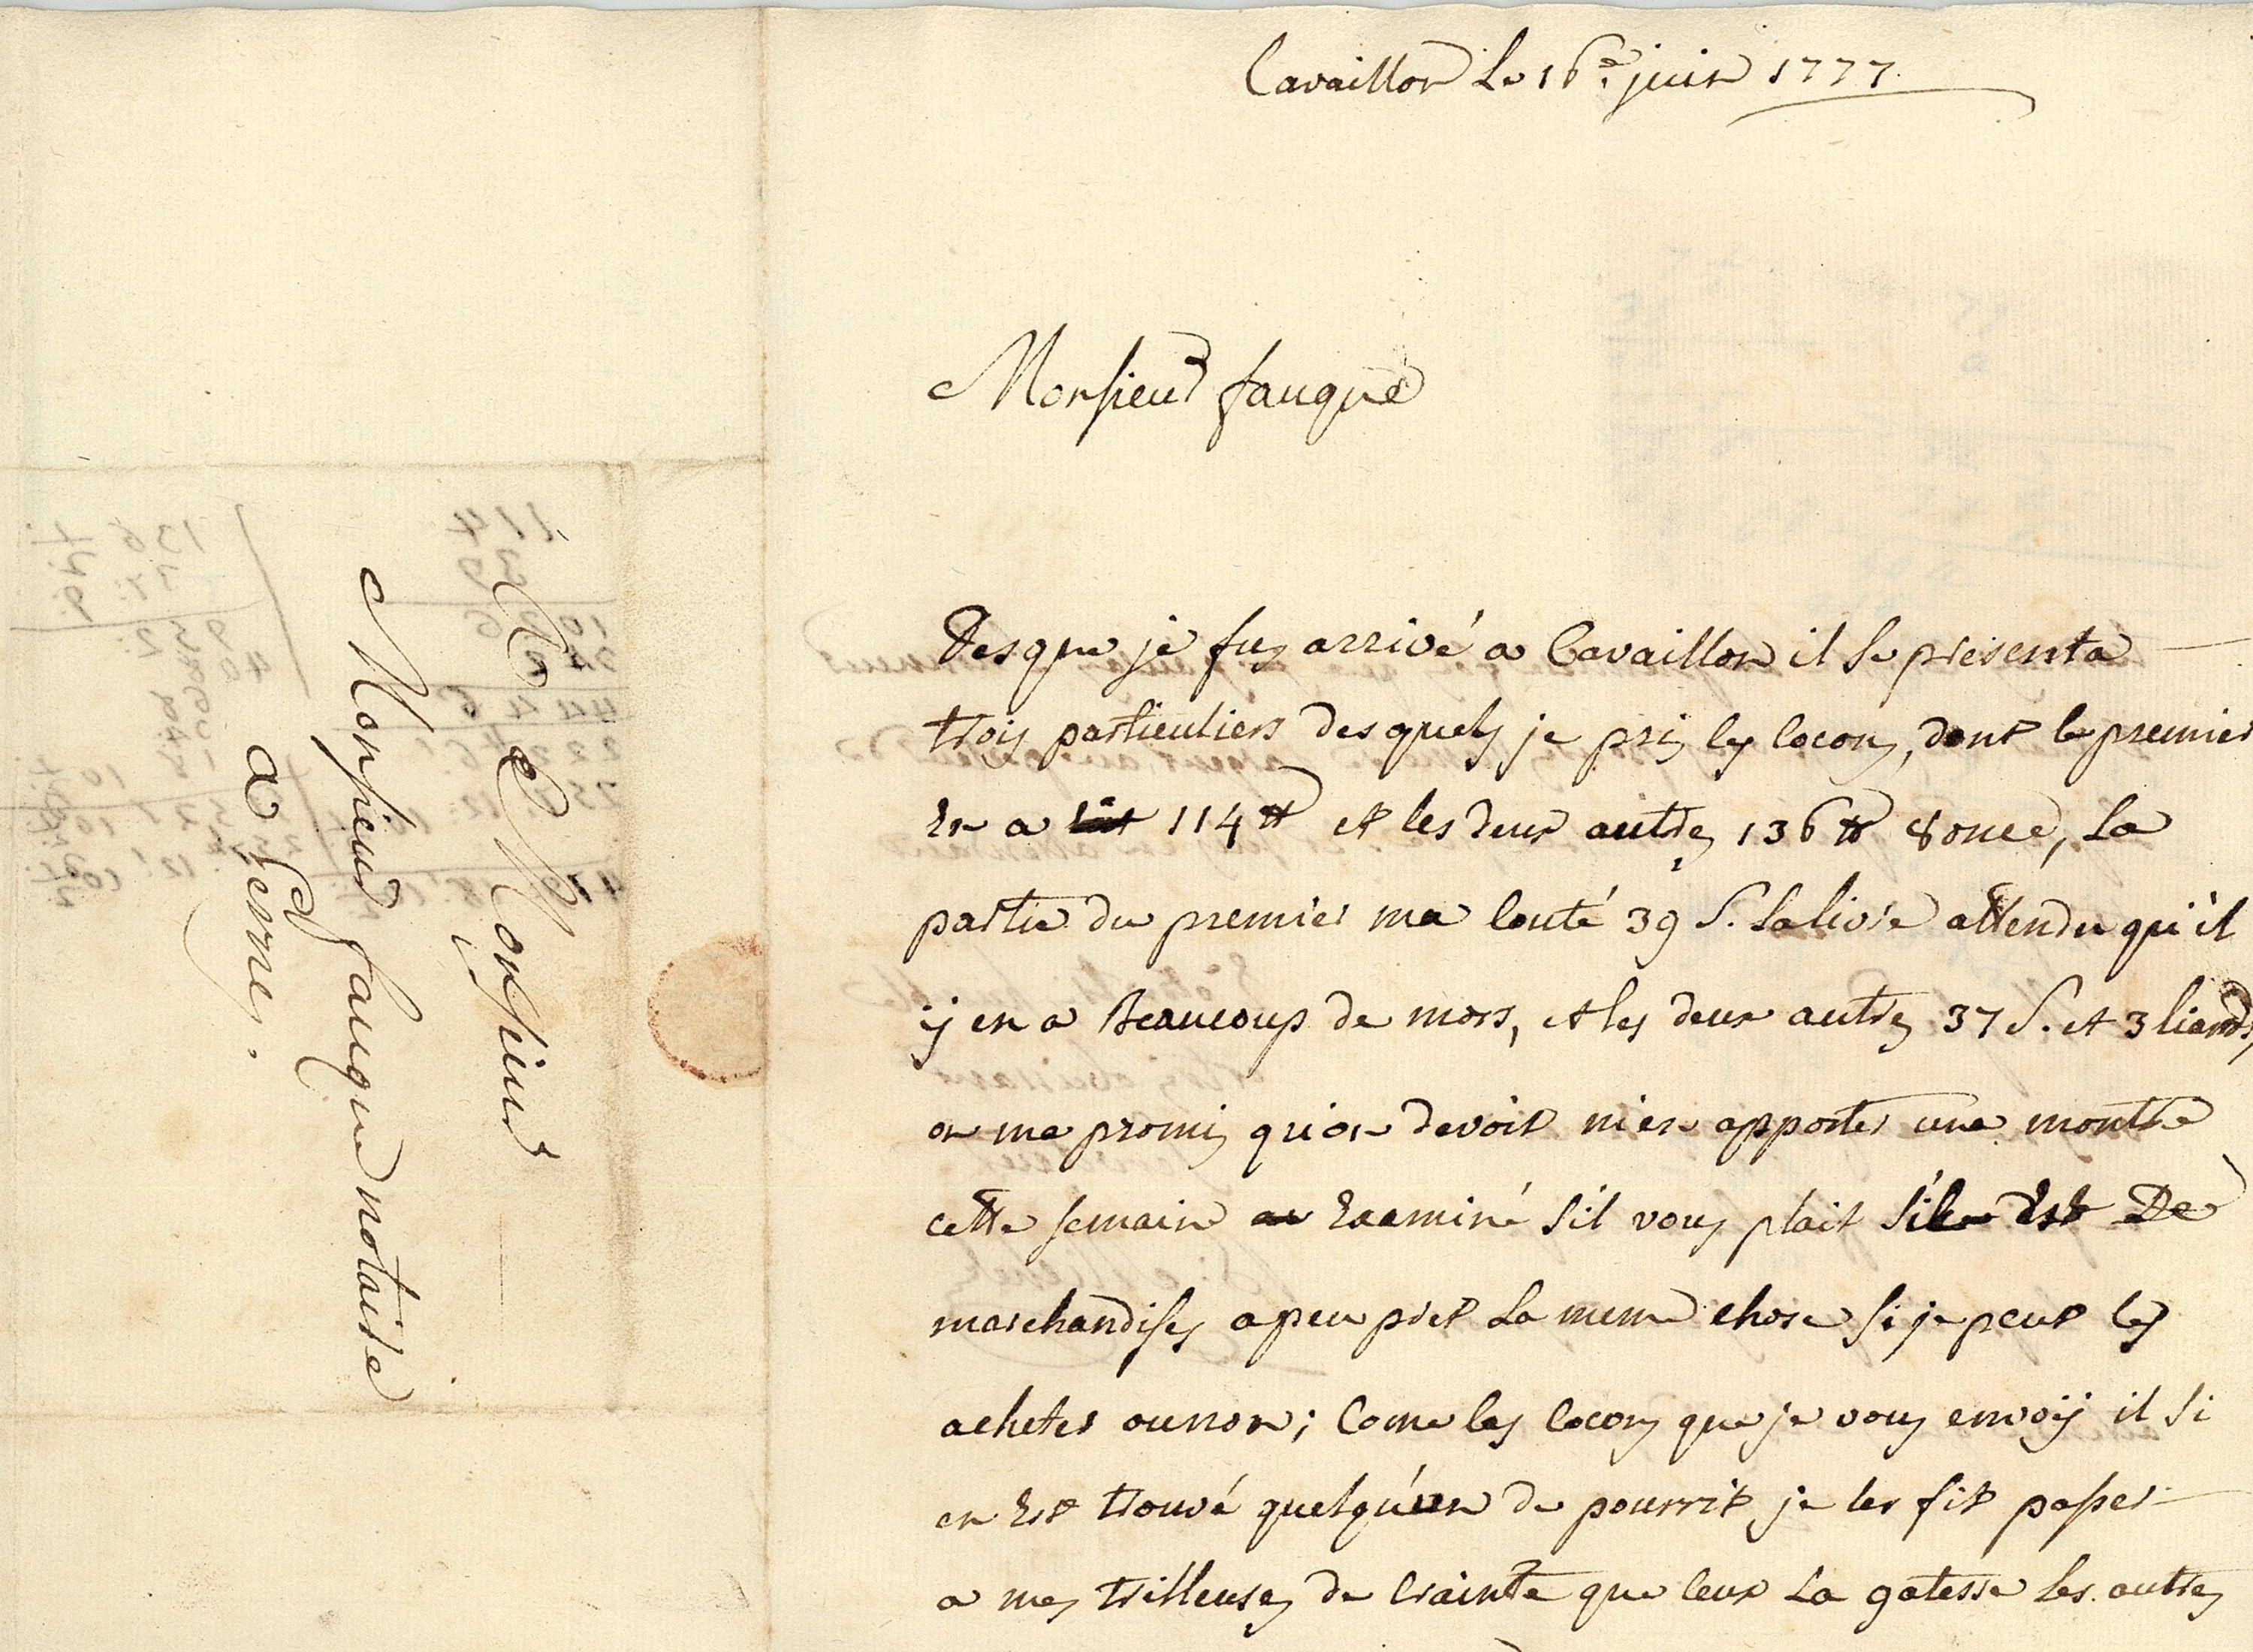 Cavaillon Le 16e juin 1777
Monsieur fauque
Desque je fus arrivé a Cavaillon il se presenta
trois particuliers desquels je pris les cocons, dont le premier
En a 114 ₶ et les deux autres 136 ₶ 8 once, la
partie du premier ma couté 39 s. la livre attendu qu'il
ÿ en a Beaucoup de mors, et les deux autres 37 s. et 3 liards,
on me promis qu'on devoit m'en apporter une montre
cette semaine Examiné s'il vous plait De
marchandises apeupret la meme chose si je peut les
acheter ounon; Come les cocons que je vous envoÿ il si
en Est trouvé quelqu'un de pourrit je les fit passer
a mes trilleuses de crainte que ceux La gatesse les autres
A Monsieur
Monsieur fauque notaire
a Pernes.
114
39